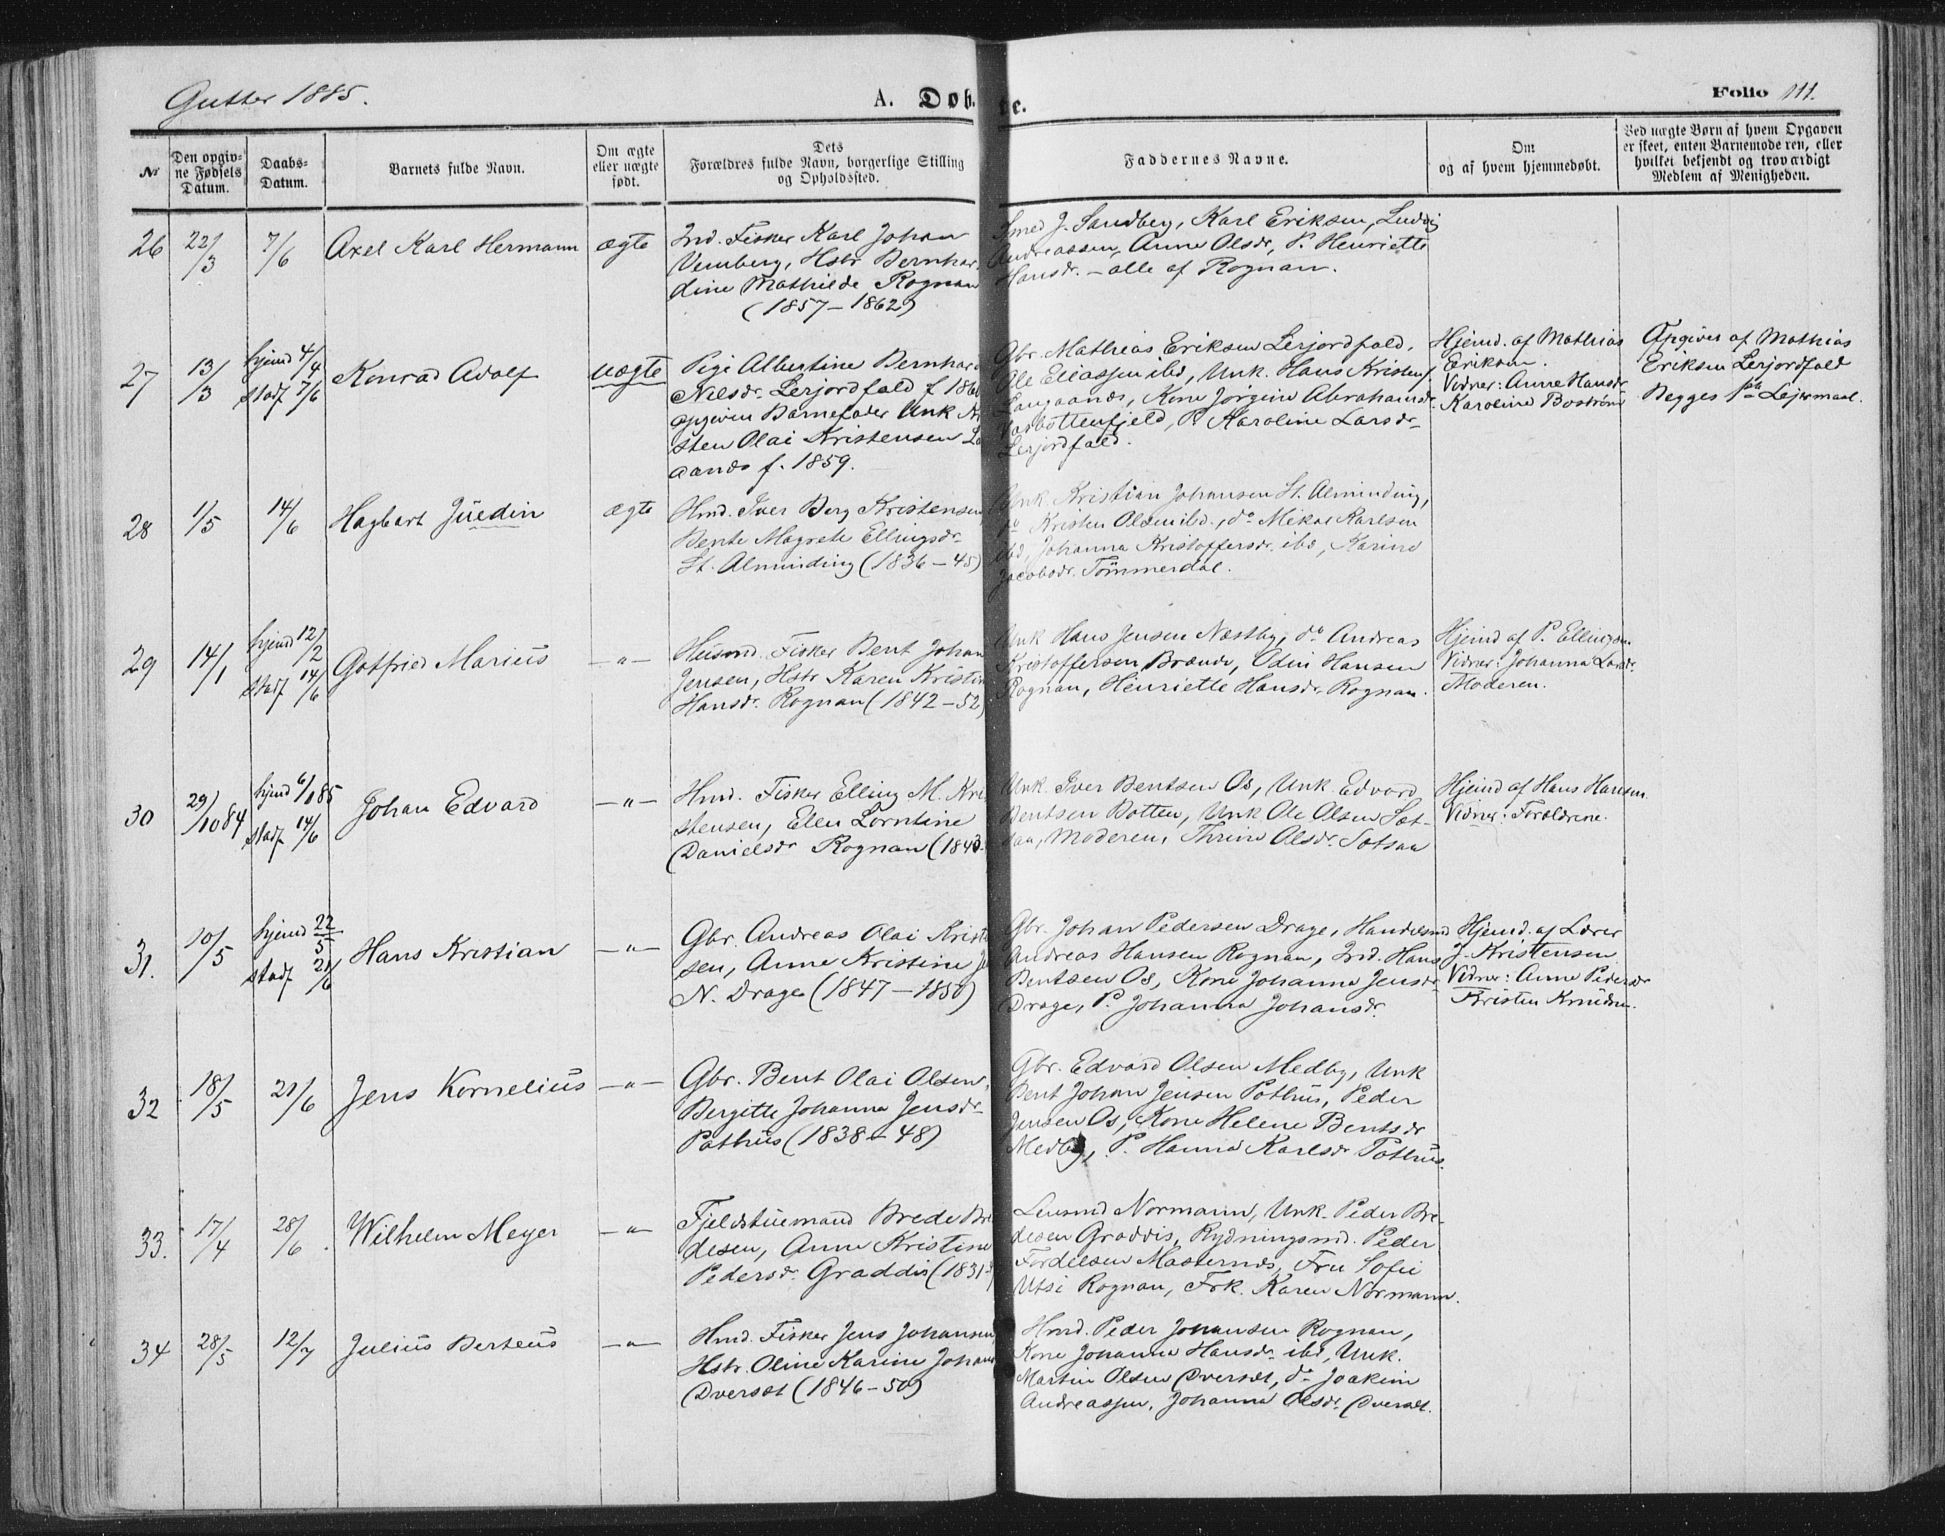 Gutter 1885.
A. Døb
te.
Folio 111.
Nr
Den opgiv-
ne Fødsels
Datum.
Daabs-
Datum.
Barnets fulde Navn.
Om ægte
eller uægte
født.
Dets
Forældres fulde Navn, borgerlige Stilling
og Opholdssted.
Faddernes Navne.
Om
og af hvem hjemmedøbt.
Ved uægte Børn af hvem Opgaven
er skeet, enten Barnemoderen, eller
hvilket bekjendt og troværdigt
Medlem af Menigheden.
26
22/3
7/6
Axel Karl Hermann
ægte
Ind. Fisker Karl Johan
Vemberg, Hstr Bernhar
dine Mathilde Rognan
(1857-1862)
Smed J. Sandberg, Karl Eriksen, Ludvig
Andreassen, Anne Olsdr, P. Henriette
Hansdr. - alle af Rognan.
27
13/3
hjemd 4/4
stadf 7/6
Konrad Adolf
uægte
Pige Albertine Bernhar
Nielsdr. Lerjordfald f 186
opgiven Barnefader Unk
sten Olai Kristensen
aands f. 1859.
Gbr. Mathias Eriksen Lerjordfald,
Ole Eliassen ibd, Unk. Hans Kristens
Langaands, Kone Jørgine Abrahamsdr
Vasbottenfjeld, P. Karoline Larsdr
Lerjordfald.
Hjemd. af Mathias
Eriksen.
Vidner: Anne Hansdr
Karoline Boström
Angives af Mathias
Eriksen Lerjordfald
Begges 1ste Lejermaal.
28
1/5
14/6
Hagbart Juedin
ægte
Hmd. Iver Berg Kristensen
Bente Magrete Ellingsdr
St. Alminding (1836-45)
Unk Kristian Johansen St. Alminding,
do Kristen Olsen ibd., do Mikal Karlsen
ibd, Johanna Kristoffersdr. ibd, Karine
Jacobsdr. Tömmerdal.
29
14/1
hjemd 12/2
stadf 14/6
Gotfried Marius
-"-
Husmd. Fisker Bent Johan
Jensen, Hstr Karen Kristin
Hansdr. Rognan (1842-52)
Unk Hans Jensen Næstby, do Andreas
Kristoffersen Brænde, Odin Hansen
Rognan, Henriette Hansdr. Rognan.
Hjemd af P. Ellingsen
Vidner: Johanna Larsdr
Moderen.
30
29/10 84
hjemd 6/1 85
stadf 14/6
Johan Edvard
-"-
Hmd. Fisker Elling M. Kri
stensen, Ellen Lorntine
Danielsdr Rognan (1843
Unk. Iver Bentsen Os, Unk. Edvard
Bentsen Botten, Unk Ole Olsen Sæt-
saa, Moderen, Thrine Olsdr. Sætsaa
Hjemd af Hans Hansen.
Vidner: Forældrene.
31.
10/5
hjemd 22/5
stadf 21/6
Hans Kristian
-"-
Gbr. Andreas Olai Krist
sen, Anne Kristine
N. Drage (1847-1850)
Gbr. Johan Pedersen Drage, Handelsmd
Andreas Hansen Rognan, Ind. Hans
Bentsen Os, Kone Johanna Jensdr
Drage, P. Johanna Johansdr.
Hjemd. af Lærer
J. Kristensen
Vidner: Anne Pedersdr
Kristen Knudsen.
32
18/5
21/6
Jens Kornelius
-"-
Gbr. Bent Olai Olsen,
Bergitte Johanna Jensdr
Pothus (1838-48)
Gbr. Edvard Olsen Medby, Unk
Bent Johan Jensen Pothus, Peder
Jensen Os, Kone Helene Bentsdr
Medby, P. Hanna Karlsdr Pothus.
33.
17/4
28/6
Wilhelm Meyer
-"-
Fjeldstuemand Brede Bre
desen, Anne Kristine
Pedersdr. Graddis (1831
Lensmd Normann, Unk. Peder Bre-
desen Graddis, Rydningsmd. Peder
Fordelsen Masternes, Fru Sofie
Utsi Rognan, Frk. Karen Normann.
34
28/5
12/7
Julius Berteus
-"-
Hmd. Fisker Jens Johansen
Hstr. Oline Karine Johans
Dverset (1846-50)
Hmd. Peder Johansen Rognan,
Kone Johanna Hansdr. ibd, Unk.
Martin Olsen Dverset, do Joakim
Andreassen, Johanna Olsdr. Dverset.